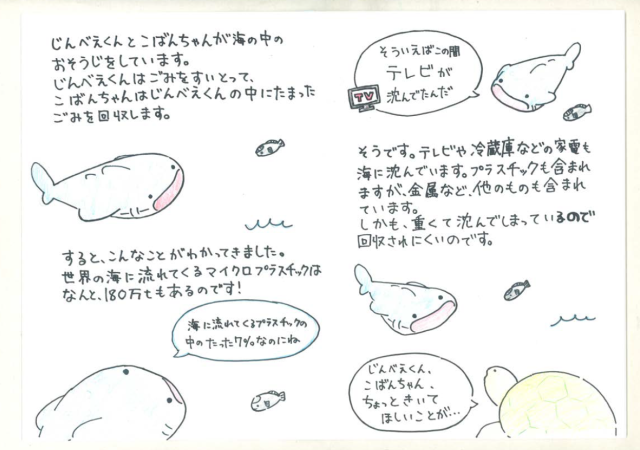 じんべえくんとこばんちゃんが海の中の
おそうじをしています。
じんべえくんはごみをすいとって、
こばんちゃんはじんべえくんの中にたまった
ごみを回収します。
すると、こんなことがわかってきました。
世界の海に流れてくるマイクロプラスチックは
なんと、180万tもあるのです!
海に流れてくるプラスチックの
中のたった17%なのにね
そういえばこの間
テレビが
沈んでたんだ
TV
そうです。テレビや冷蔵庫などの家電も
海に沈んでいます。プラスチックも含まれ
ますが、金属など、他のものも含まれ
ています。
しかも、重くて沈んでしまっているので
回収されにくいのです。
じんべえくん、
こばんちゃん、
ちょっときいて
ほしいことが…